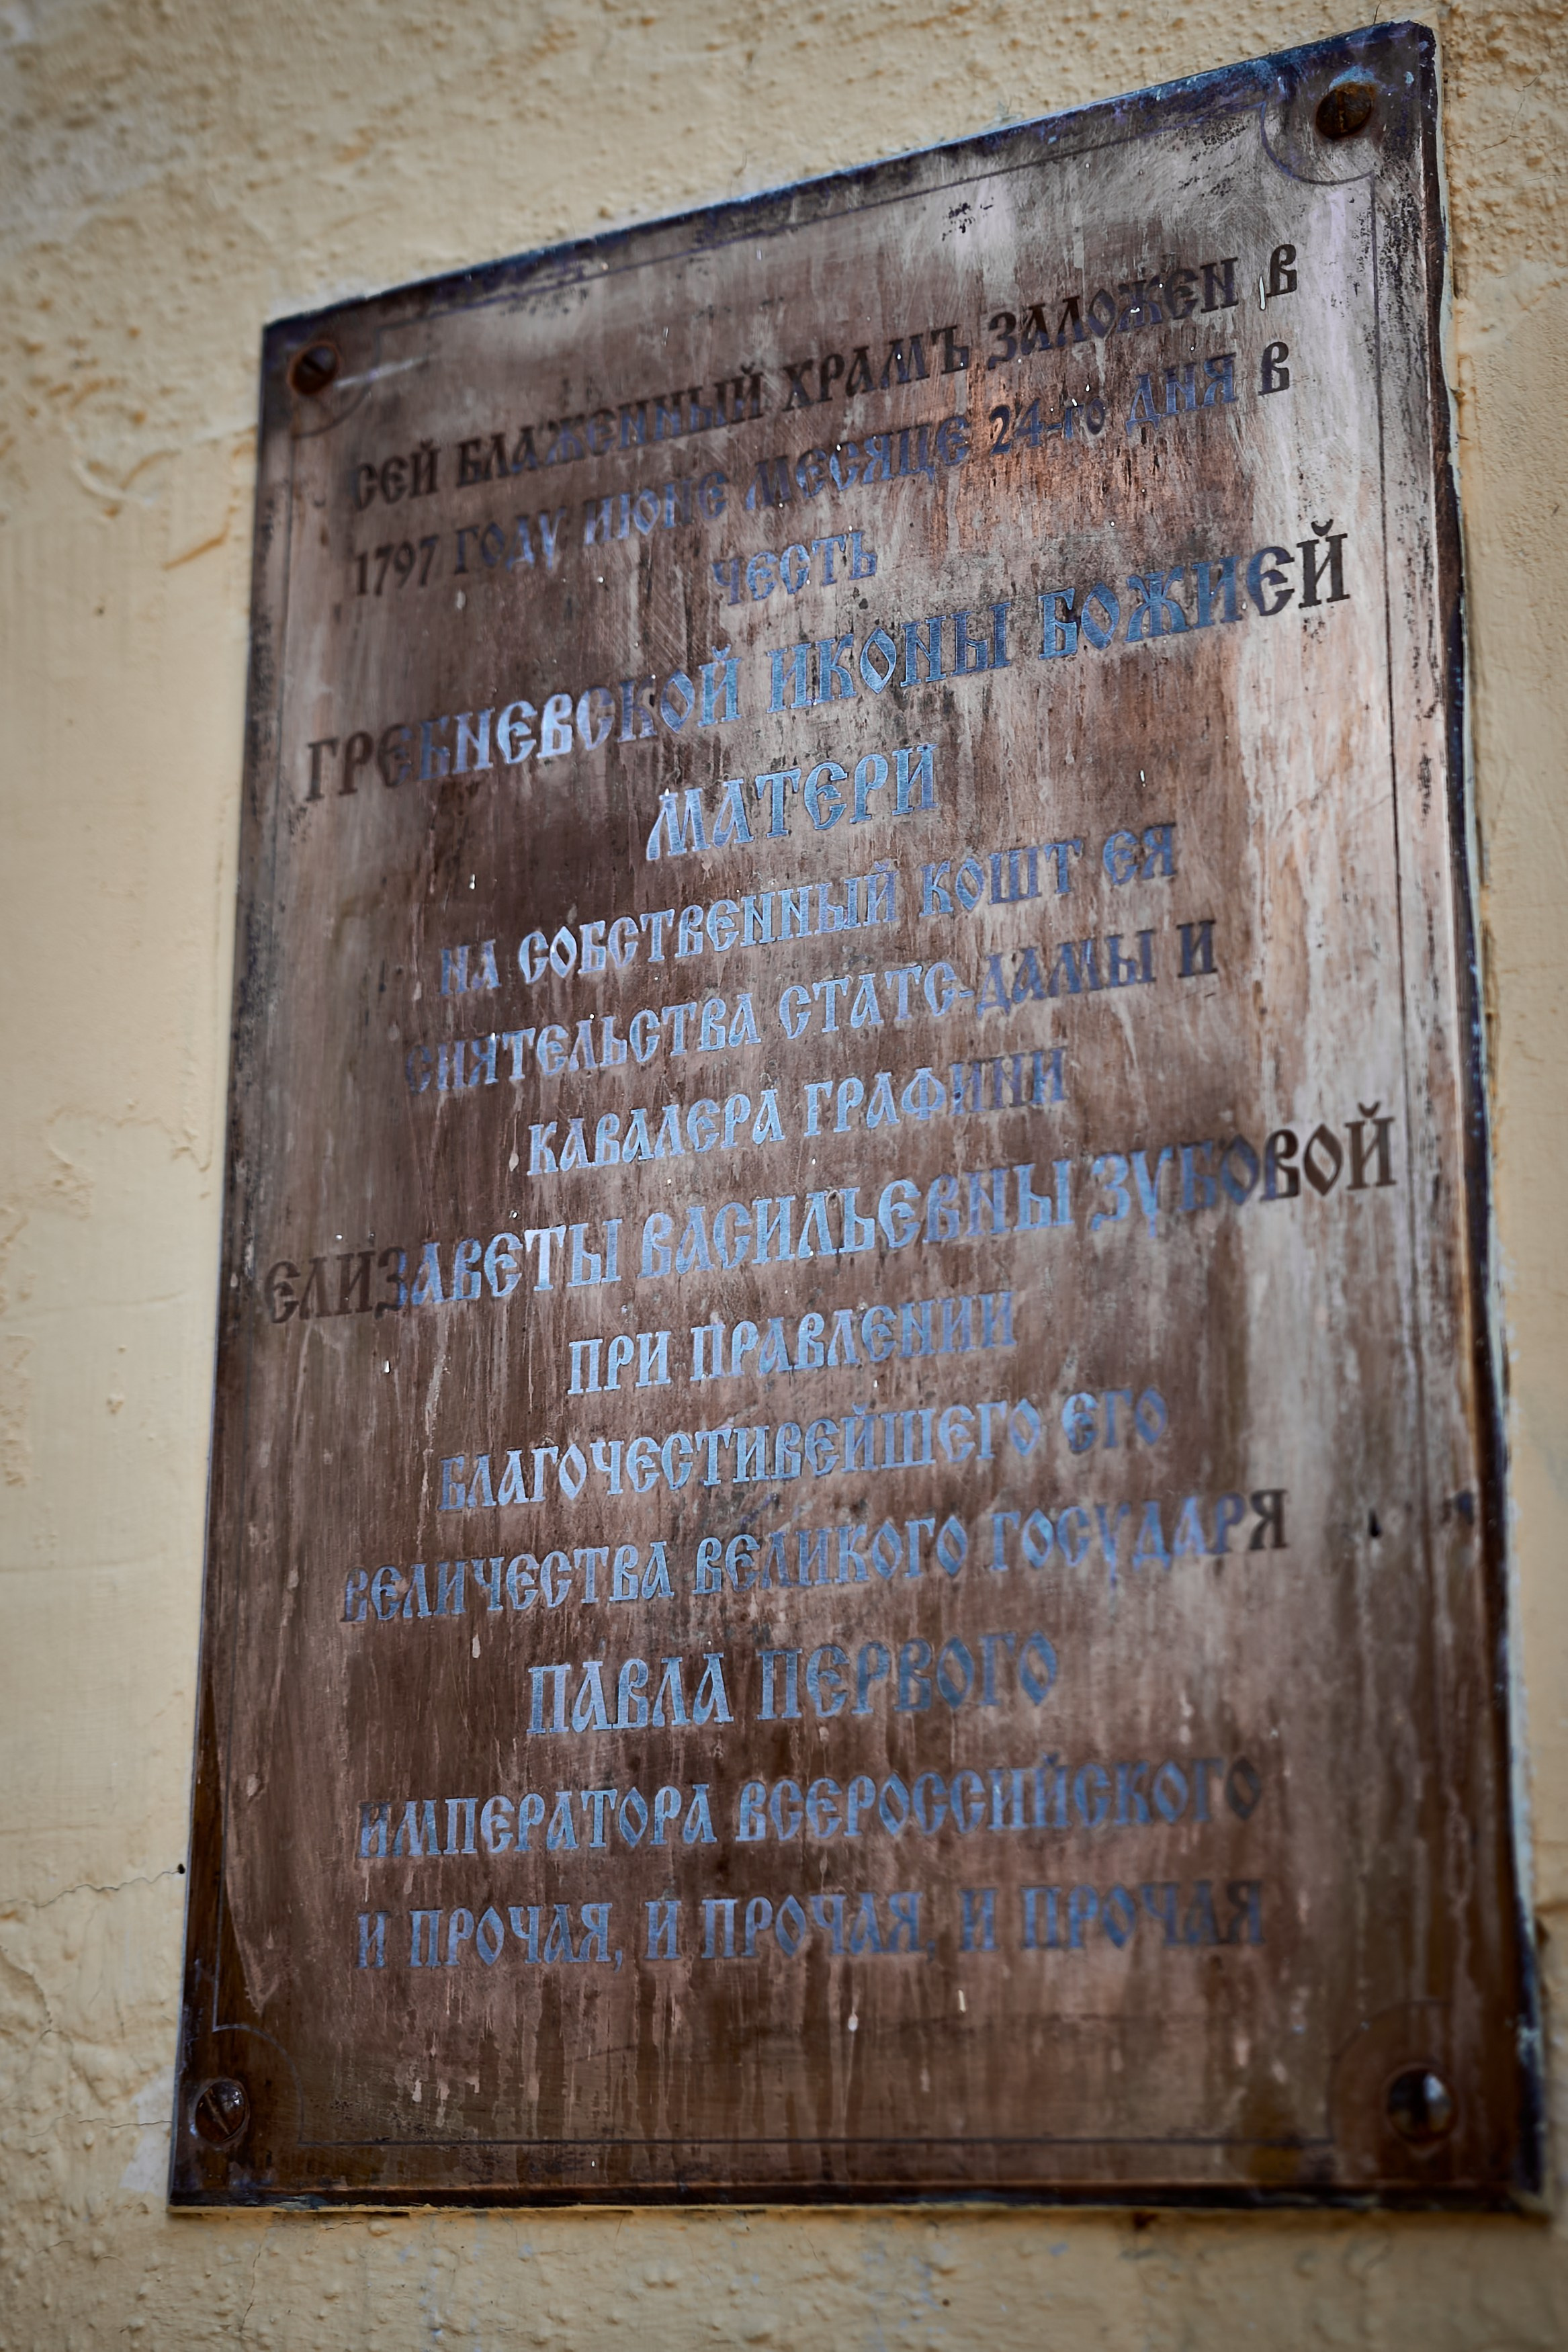 СЕЙ БЛАЖЕННЫЙ ХРАМЪ ЗАЛОЖЕН В
1797 ГОДУ ИЮНЕ МЕСЯЦЕ 24-го ДНЯ В
ЧЕСТЬ
ГРЕБНЕВСКОЙ ИКОНЫ БОЖИЕЙ
МАТЕРИ
НА СОБСТВЕННЫЙ КОШТ ЕЯ
СИЯТЕЛЬСТВА СТАТС-ДАМЫ И
КАВАЛЕРА ГРАФИНИ
ЕЛИЗАВЕТЫ ВАСИЛЬЕВНЫ ЗУБОВОЙ
ПРИ ПРАВЛЕНИИ
БЛАГОЧЕСТИВЕЙШЕГО ЕГО
ВЕЛИЧЕСТВА ВЕЛИКОГО ГОСУДАРЯ
ПАВЛА ПЕРВОГО
ИМПЕРАТОРА ВСЕРОССИЙСКОГО
И ПРОЧАЯ, И ПРОЧАЯ, И ПРОЧАЯ